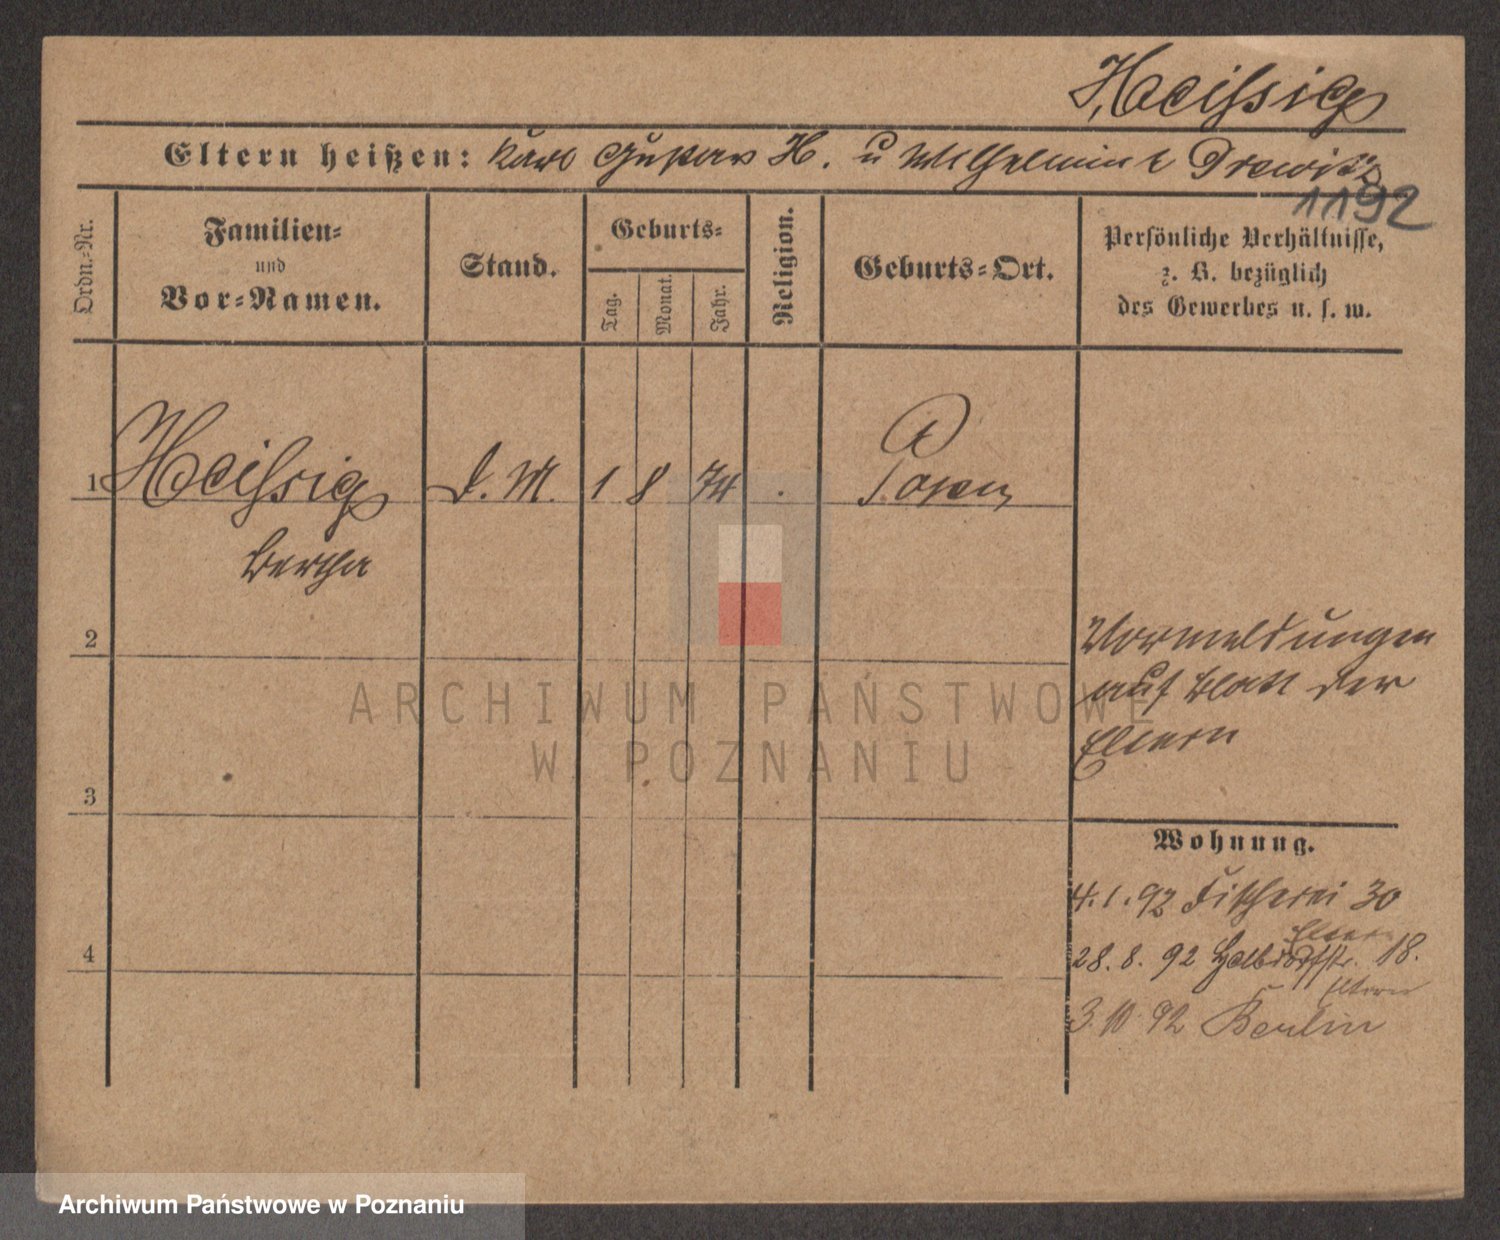 Heissig
Eltern heißen: Karl Gustav H. u Wilhelmine Drewitz
1192
Ordn.-Nr.
Familien-
und
Vor-Namen.
Stand.
Geburts-
Tag.
Monat.
Jahr.
Religion.
Geburts-Ort.
Persönliche Verhältnisse,
z. B. bezüglich
des Gewerbes u. s. w.
1 Heissig d. M. 1 8 74 Posen
Bertha
2
Vormeldungen
auf Blatt der
Eltern
3
Wohnung.
4.1.92 Fischerei 30
Eltern
28.8.92 Halbdorfstr. 18.
Eltern
3.10.92 Berlin
4
ARCHIWUM PAŃSTWOWE
W POZNANIU
Archiwum Państwowe w Poznaniu